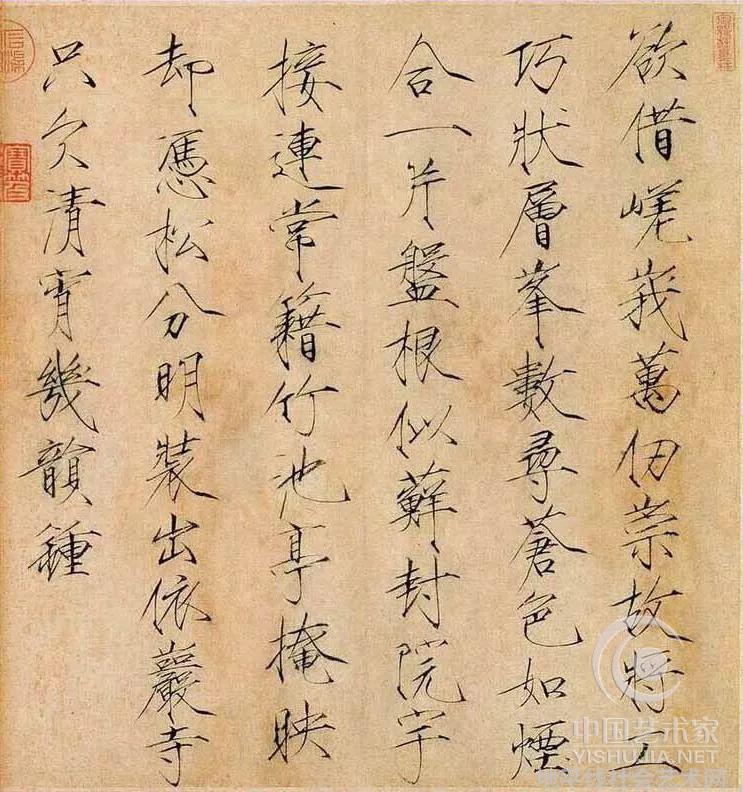 欲借嵯峩萬仞崇故將工
巧狀層峯數尋蒼色如煙
合一片盤根似蘚封院宇
接連常籍竹池亭掩映
却憑松分明裝出依巖寺
只欠清宵幾韻鍾
中国艺术家
YISHUJIA.NET